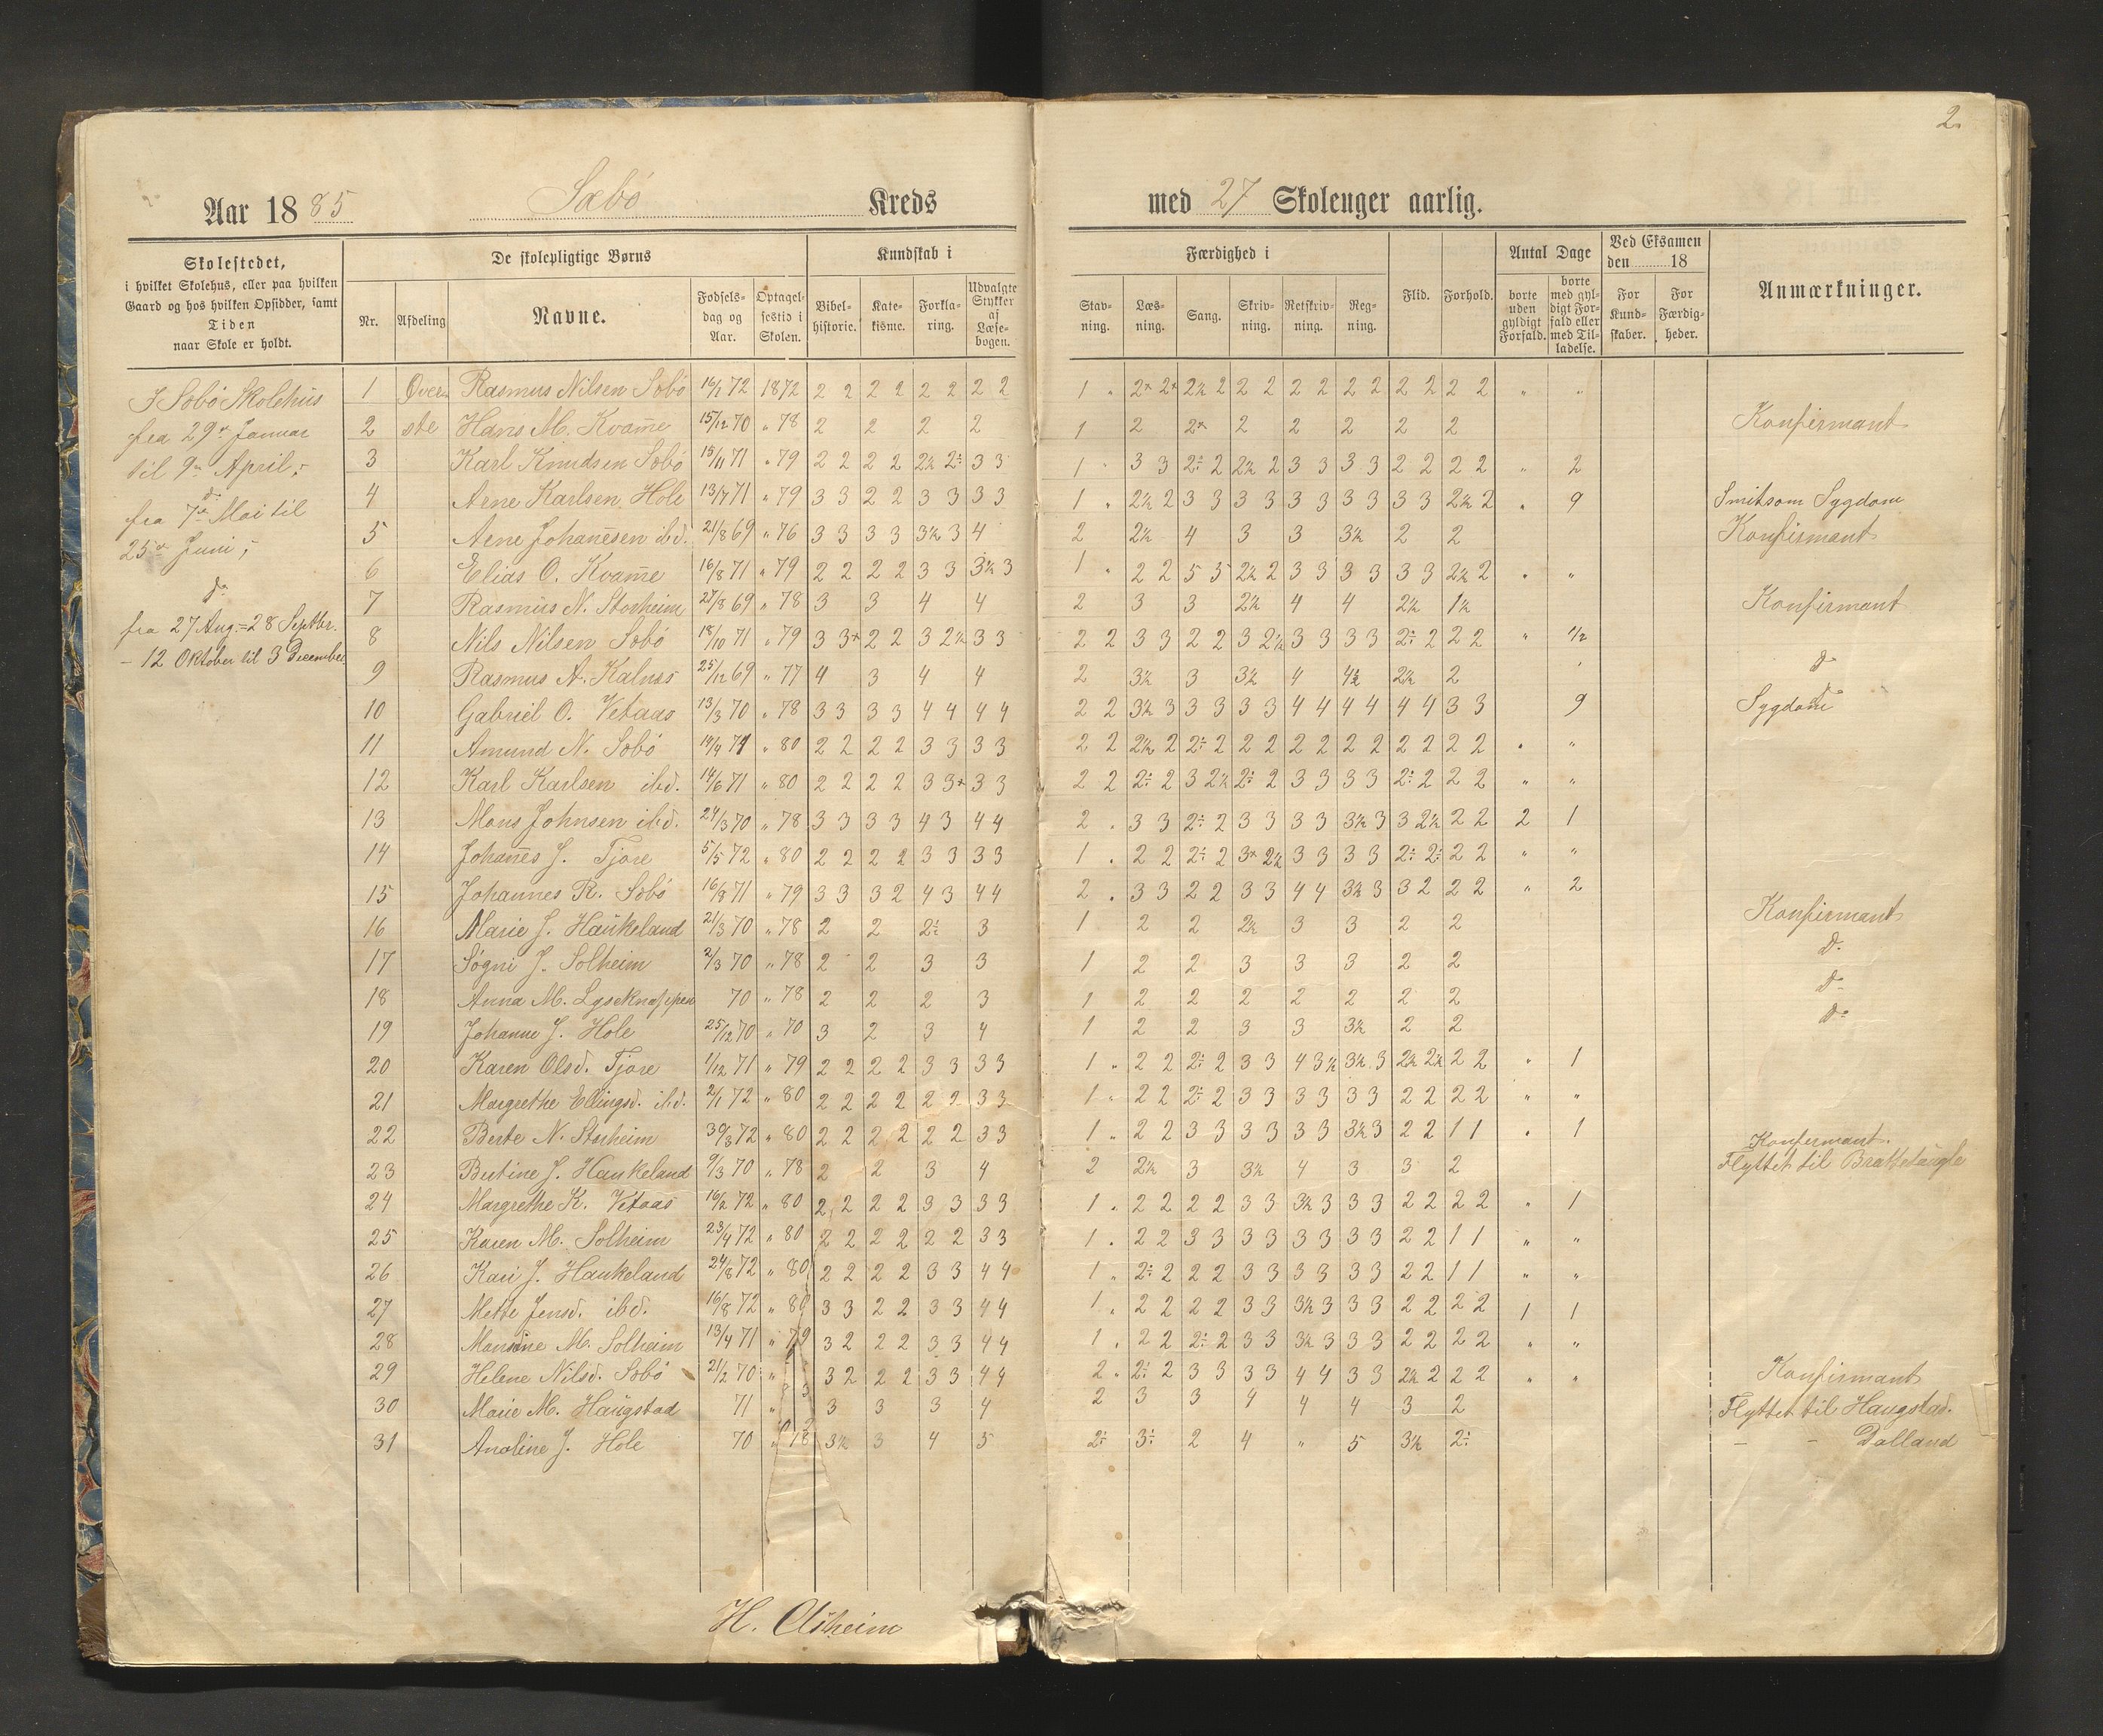 2.
Aar 1885 Sæbø Kreds med 27 Skoleuger aarlig.
Skolestedet,
i hvilket Skolehus, eller paa hvilken
Gaard og hos hvilken Opsidder, samt
Tiden
naar Skole er holdt.
De skolepligtige Børns
Nr. Afdeling Navne. Fødsels-dag og Aar. Optagel-sestid i Skolen.
Kundskab i
Bibel-historie. Kate-kisme. Forkla-ring. Udvalgte Stykker af Læse-bogen.
Færdighed i
Stav-ning. Læs-ning. Sang. Skriv-ning. Retskriv-ning. Reg-ning.
Flid. Forhold.
Antal Dage
borte uden gyldigt Forfald. borte med gyl-digt For-fald eller med Til-ladelse.
Ved Eksamen den 18
For Kund-skaber. For Færdig-heder.
Anmærkninger.
I Sæbø Skolehus
fra 29de Januar
til 9de April;
do
fra 7de Mai til
25de Juni;
do
fra 27 Aug.=28 Septbr.
- 12 Oktober til 3 December
1 Øver Rasmus Nilsen Sæbø 16/1 72 1872 2 2 2 2 2 2 2 2 1 " 2x 2x 2½ 2 2 2 2 2 2 2 2 2 2 2 " "
2 ste Hans M. Kvam̄e 15/12 70 " 78 2 2 2 2 1 2 2x 2 2 2 2 2 Konfirmant
3 Karl Knudsen Sæbø 15/11 71 " 79 2 2 2 2 2½ 2÷ 3 3 1 " 3 3 2÷ 2 2½ 2 3 3 3 3 2 2 2 2 " 2
4 Arne Karlsen Hole 13/7 71 " 79 3 3 2 2 3 3 3 3 1 " 2½ 2 3 3 3 3 3 3 3 3 3 3 2½ 2 " 9 Smitsom Sygdom
5 Arne Johan̄esen ibd. 21/8 69 " 76 3 3 3 3 3½ 3 4 2 2½ 4 3 3 3½ 2 2 Konfirmant
6 Elias O. Kvam̄e 16/8 71 " 79 2 2 2 2 3 3 3½ 3 1 " 2 2 5 5 2½ 2 3 3 3 3 3 3 2½ 2 " "
7 Rasmus N. Storheim 27/8 69 " 78 3 3 4 4 2 3 3 2½ 4 4 2½ 1½ Konfirmant
8 Nils Nilsen Sæbø 18/10 71 " 79 3 3x 2 2 3 2½ 3 3 2 2 3 3 2 2 3 2½ 3 3 3 3 2÷ 2 2 2 " 1/2
9 Rasmus A. Kalnæs 25/12 69 " 77 4 3 4 4 2 3½ 3 3½ 4 4½ 2½ 2 do
10 Gabriel O. Vetaas 13/3 70 " 78 3 3 3 3 4 4 4 4 2 2 3½ 3 3 3 3 3 4 4 4 4 4 4 3 3 9 Sygdom do
11 Amund N. Sæbø 14/4 71 " 80 2 2 2 2 3 3 3 3 2 2 2½ 2 2÷ 2 2 2 2 2 2 2 2 2 2 2 " "
12 Karl Karlsen ibd. 14/6 71 " 80 2 2 2 2 3 3x 3 3 2 2 2÷ 2 3 2½ 2÷ 2 3 3 3 3 2÷ 2 2 2 " "
13 Mons Johnsen ibd. 24/3 70 " 78 3 3 3 3 4 3 4 4 2 " 3 3 2÷ 2 3 3 3 3 3½ 3 3 2½ 2 2 2 1
14 Johan̄es J. Tjore 5/5 72 " 80 2 2 2 2 3 3 3 3 1 " 2 2 2÷ 2 3x 2½ 3 3 3 3 2÷ 2÷ 2 2 " "
15 Johannes R. Sæbø 16/8 71 " 79 3 3 3 2 4 3 4 4 2 " 3 3 2 2 3 3 4 4 3½ 3 3 2 2 2 " 2
16 Marie J. Haukeland 21/3 70 " 78 2 2 2÷ 3 1 2 2 2½ 3 3 2 2 Konfirmant
17 Søgni J. Solheim 2/3 70 " 78 2 2 3 3 1 2 2 3 3 3 2 2 Do
18 Anna M. Lyseknappen 70 " 78 2 2 2 3 1 2 2 2 2 2 2 2 Do
19 Johanne J. Hole 25/12 70 " 70 3 2 3 4 1 2 2 3 3 3½ 2 2 Do
20 Karen Olsd. Tjore 1/12 71 " 79 2 2 2 2 3 3 3 3 1 " 2 2 2÷ 2 3 3 4 3½ 3½ 3 2½ 2½ 2 2 " 1
21 Margrethe Ellingsd. ibd. 2/1 72 " 80 2 2 2 2 2 2 3 3 1 " 2 2 2÷ 2 3 3 3 3 3 3 2 2 2 2 " "
22 Berte N. Storheim 30/3 72 " 80 2 2 2 2 2 2 3 3 1 " 2 2 3 3 3 3 3 3 3½ 3 2 2 1 1 " 1
23 Bertine J. Haukeland 9/3 70 " 78 2 2 3 4 2 2½ 3 3½ 4 3 3 2 Konfirmant. Flyttet til Brattetaugle
24 Margrethe K. Vetaas 16/2 72 " 80 2 2 2 2 3 3 3 3 1 " 2 2 2 2 3 3 3½ 3 3 3 2 2 2 2 " 1
25 Karen M. Solheim 23/4 72 " 80 2 2 2 2 2 2 3 3 1 " 2 2 3 3 3 3 3 3 3 3 2 2 1 1 " "
26 Kari J. Haukeland 24/8 72 " 80 2 2 2 2 3 3 4 4 1 " 2÷ 2 2 2 3 3 3 3 3 3 2 2 1 1 " "
27 Mette Jensd. ibd. 16/8 72 " 80 3 3 2 2 3 3 4 4 1 " 2 2 2 2 3 3 3½ 3 3 3 2 2 2 2 1 1
28 Mansine M. Solheim 13/4 71 " 79 3 2 2 2 3 3 4 4 1 " 2 2 2÷ 2 3 3 3½ 3 3 3 2 2 2 2 " "
29 Helene Nilsd. Sæbø 21/2 70 " 3 2 2 2 3 3 4 4 2 " 2÷ 2 3 3 3 3 4 4 3 3 2½ 2 2 2 " " Konfirmant
30 Marie M. Haugstad 71 " 3 3 3 4 2 3 3 4 4 4 3 2 Flyttet til Haugstad.
31 Anoline J. Hole 70 " 78 3½ 3 4 5 2÷ 3÷ 2 4 " 5 3½ 2÷ - - Dalland
H. Alsheim